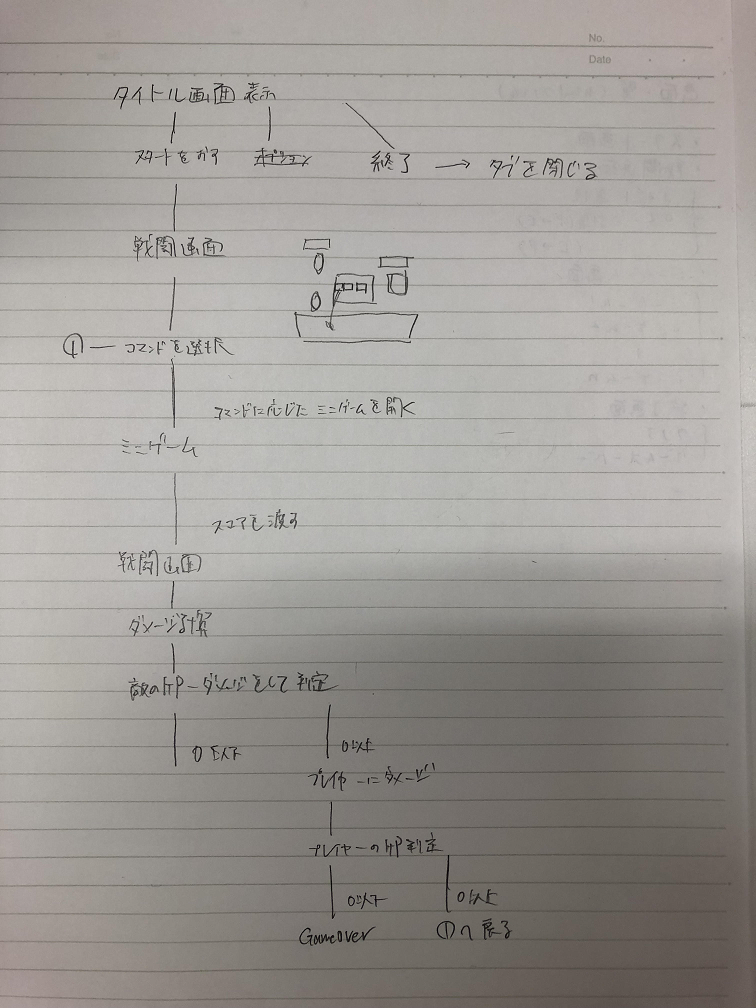 No.
Date
タイトル画面 表示
スタートをおす オプション 終了 → タブを閉じる
戦闘画面
① ― コマンドを選択
コマンドに応じた ミニゲームを開く
ミニゲーム
スコアを渡す
戦闘画面
ダメージ計算
敵のHP－ダメージをして判定
0以下 0以上
プレイヤーにダメージ
プレイヤーのHP判定
0以下 0以上
GameOver ①へ戻る